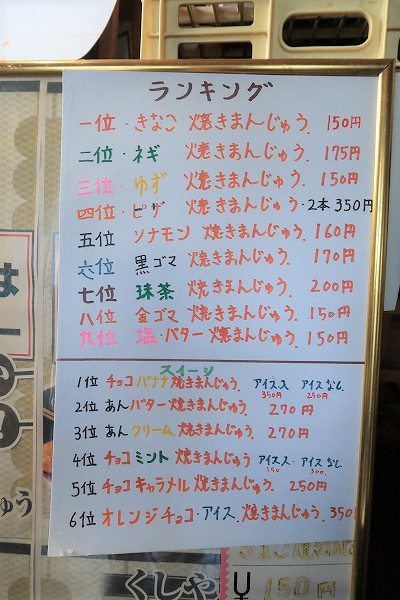 ランキング
一位・きなこ 焼きまんじゅう. 150円
二位・ネギ 焼きまんじゅう. 175円
三位・ゆず 焼きまんじゅう. 150円
四位・ピザ 焼きまんじゅう・2本350円
五位 シナモン 焼きまんじゅう. 160円
六位 黒ゴマ 焼きまんじゅう. 170円
七位 抹茶 焼きまんじゅう. 200円
八位 金ゴマ 焼きまんじゅう. 150円
九位 塩・バター 焼まんじゅう. 150円
スイーツ
1位 チョコバナナ焼きまんじゅう. アイス入 アイスなし.
350円 250円
2位 あんバター焼きまんじゅう. 270円
3位 あんクリーム焼きまんじゅう. 270円
4位 チョコミント焼きまんじゅう アイス入・アイスなし.
350 300.
5位 チョコキャラメル焼きまんじゅう. 250円
6位 オレンジチョコ・アイス.焼きまんじゅう. 350
は
ゅう
くしや
¥150円